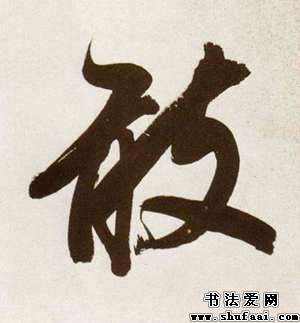 敢
书法爱网
www.shufaai.com